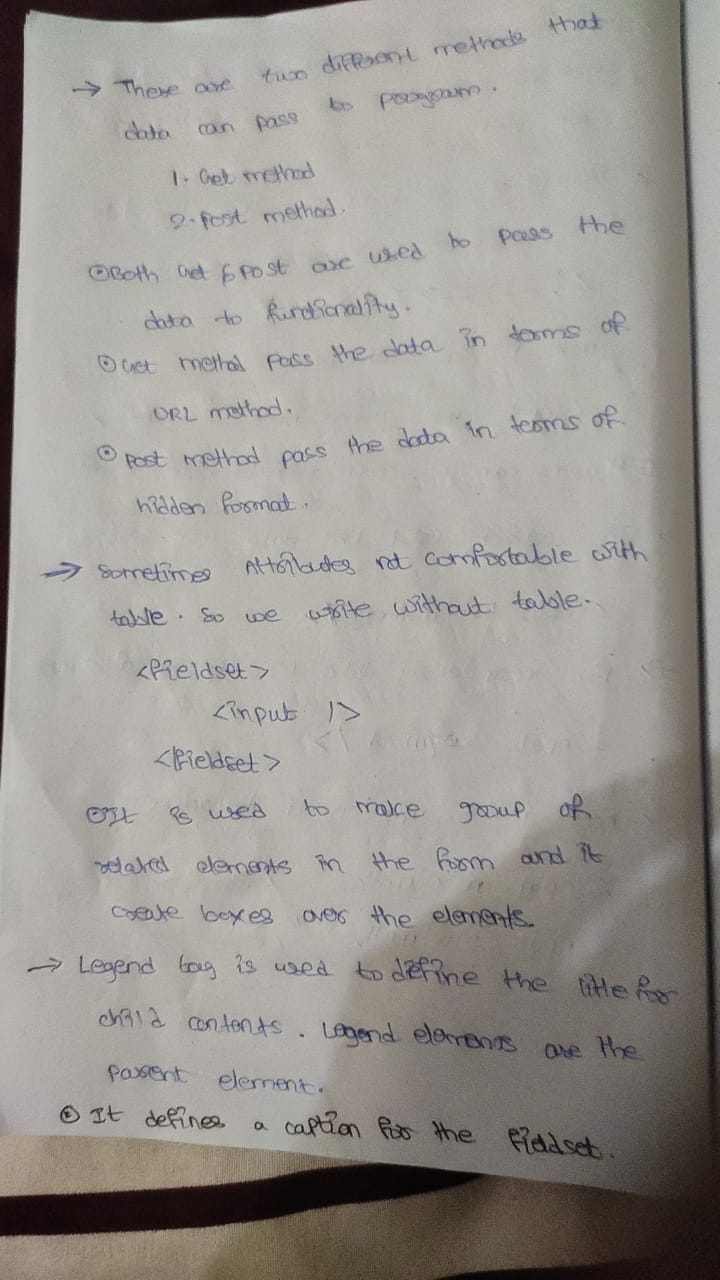 → There are two different methods that
data can pass to program.
1. Get method
2. Post method.
⊙ Both Get & Post are used to pass the
data to functionality.
⊙ Get method pass the data in terms of
URL method.
⊙ Post method pass the data in terms of
hidden format.
→ Sometimes Attributes not comfortable with
table. So we write without table.
<fieldset>
<input />
<fieldset>
⊙ It is used to make group of
related elements in the form and it
create boxes over the elements.
→ Legend tag is used to define the title for
child contents. Legend elements are the
parent element.
⊙ It defines a caption for the fieldset.